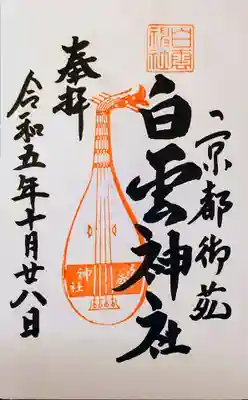 京都御苑
白雲神社
白雲神社
奉拝
神社
令和五年十月廿八日